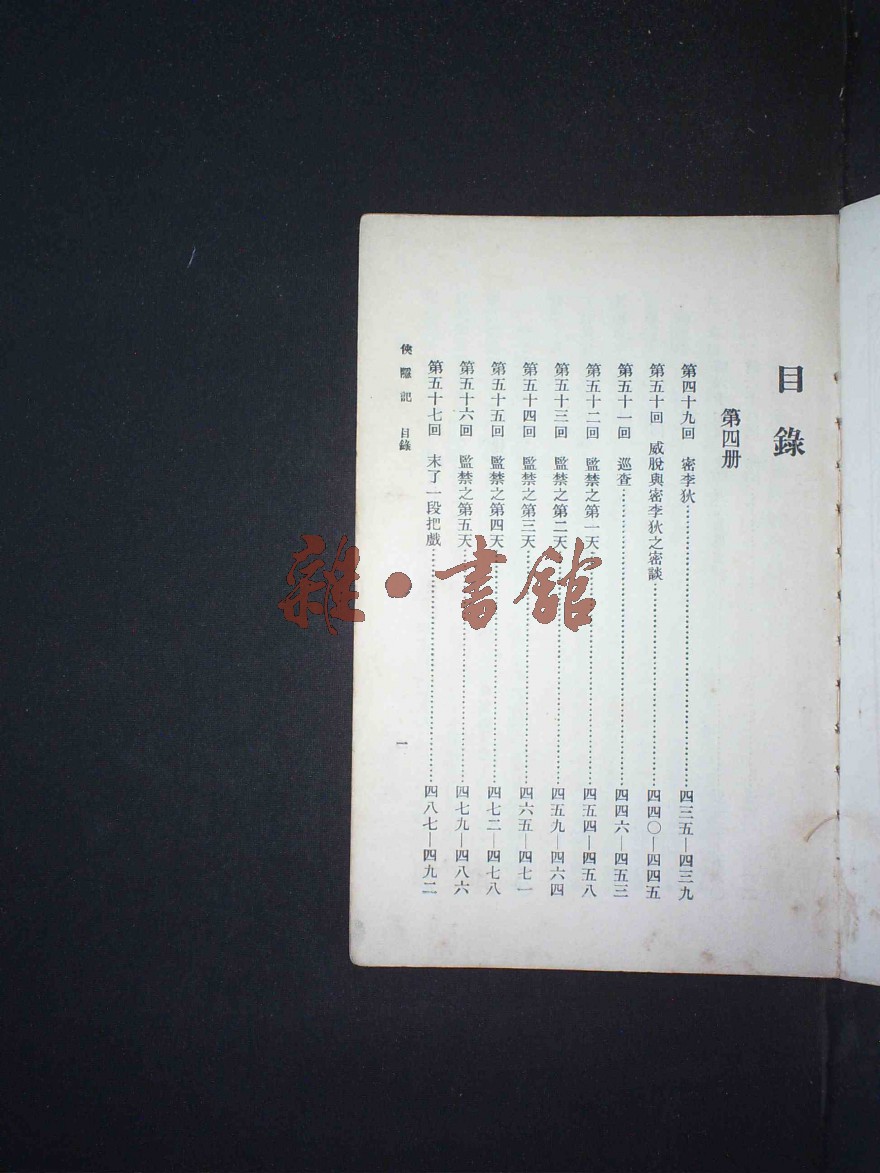 目錄
第四册
第四十九回　密李狄……四三五—四三九
第五十回　威脫與密李狄之密談……四四〇—四四五
第五十一回　巡查……四四六—四五三
第五十二回　監禁之第一天……四五四—四五八
第五十三回　監禁之第二天……四五九—四六四
第五十四回　監禁之第三天……四六五—四七一
第五十五回　監禁之第四天……四七二—四七八
第五十六回　監禁之第五天……四七九—四八六
第五十七回　末了一段把戲……四八七—四九二
俠隱記　目錄　一
雜·書館